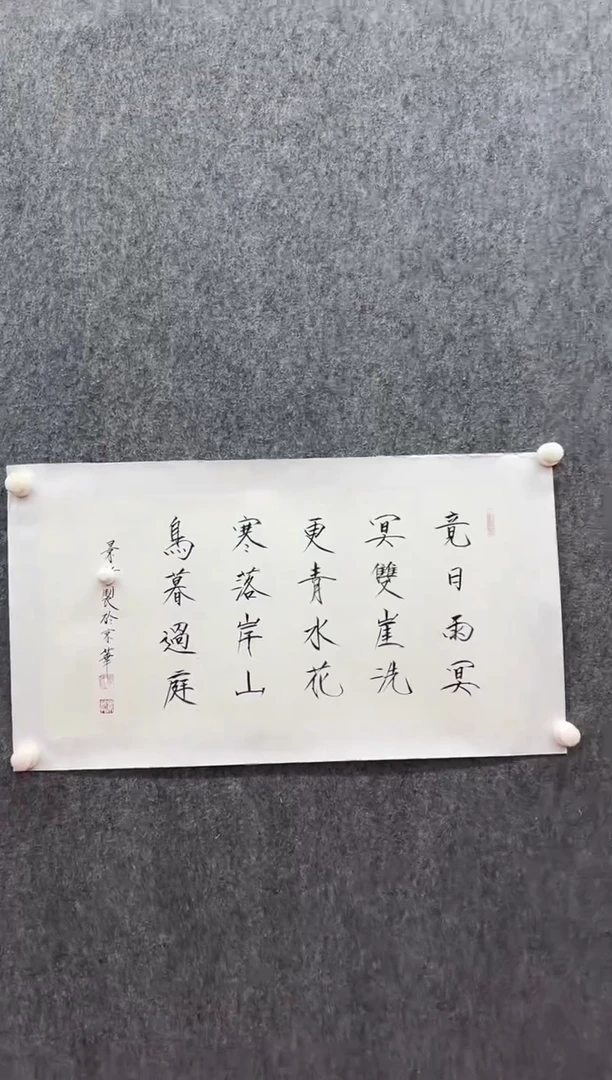 竟日雨冥
冥雙崖洗
更青水花
寒落岸山
鳥暮過庭
製於京華